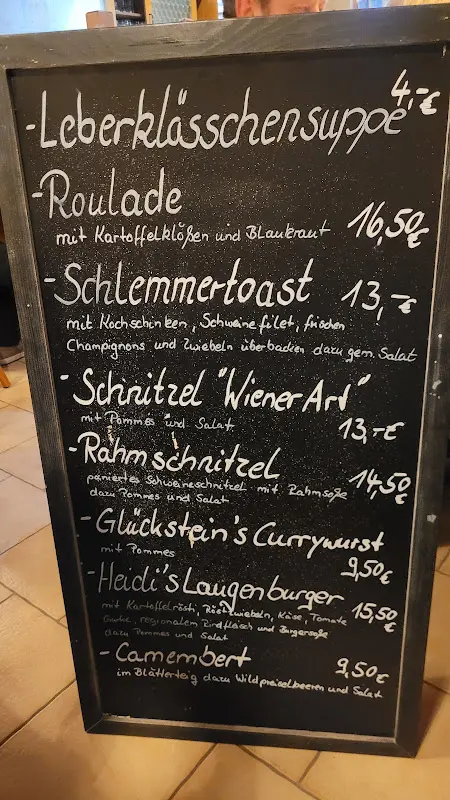 4,-€
-Leberklässchensuppe
-Roulade
mit Kartoffelklößen und Blaukraut 16,50€
-Schlemmertoast 13,-€
mit Kochschinken, Schweinefilet, frischen
Champignons und Zwiebeln überbacken dazu gem. Salat
-Schnitzel "Wiener Art"
mit Pommes und Salat 13,-€
-Rahmschnitzel 14,50€
paniertes Schweineschnitzel mit Rahmsoße
dazu Pommes und Salat
-Glückstein's Currywurst
mit Pommes 9,50€
-Heidi's Laugenburger 15,50€
mit Kartoffelrösti, Röstzwiebeln, Käse, Tomate
Gurke, regionalem Rindfleisch und Burgersoße
dazu Pommes und Salat
-Camembert 9,50€
im Blätterteig dazu Wildpreiselbeeren und Salat